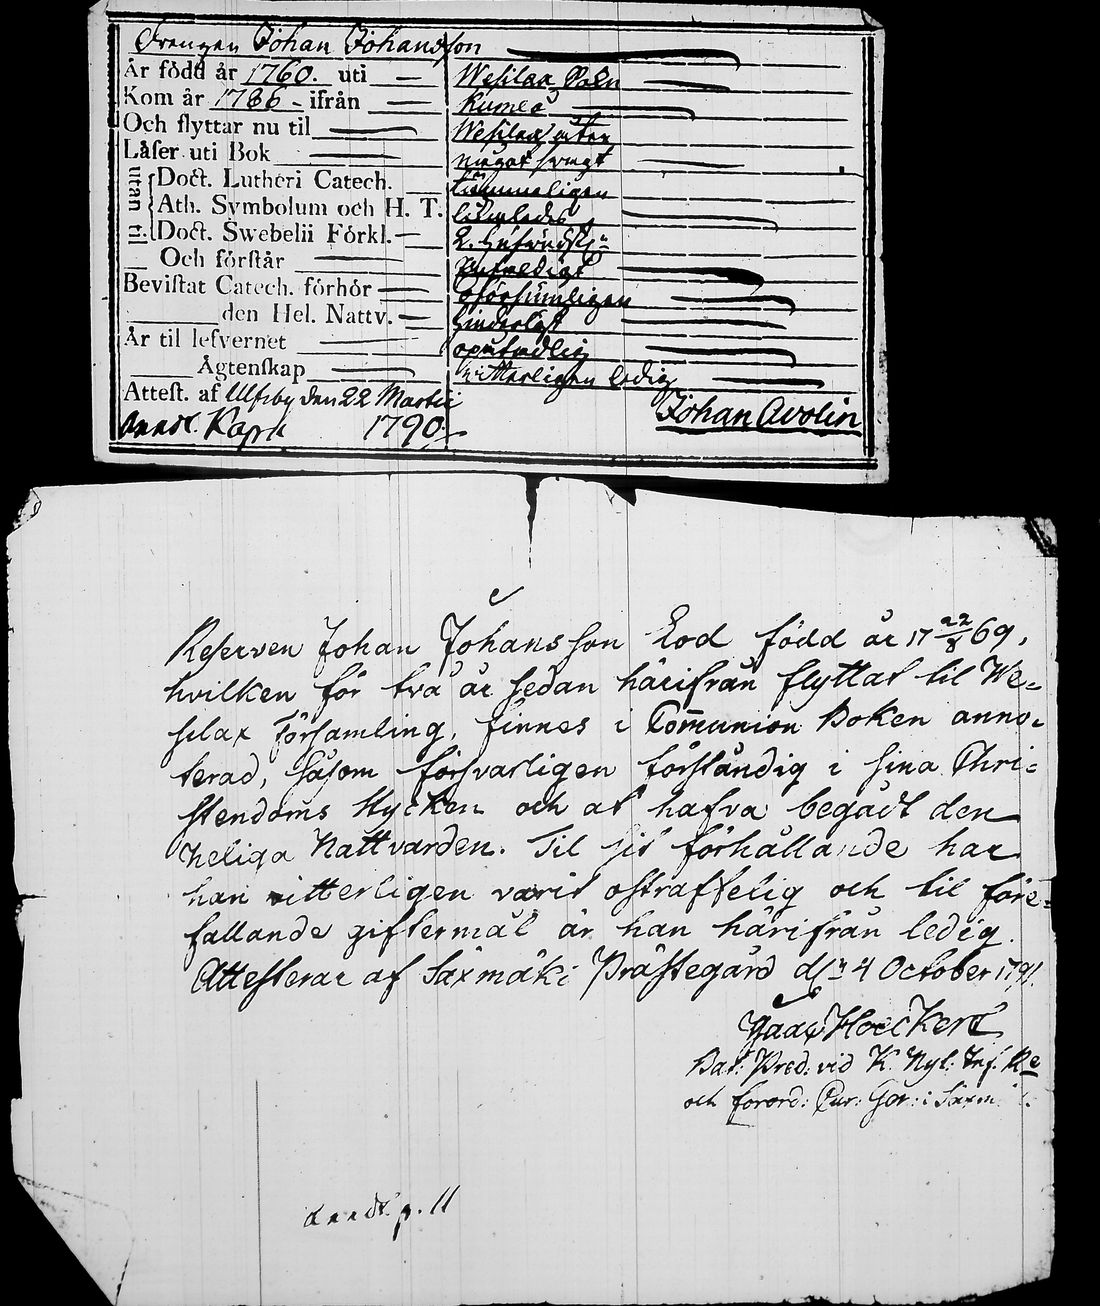 Drengen Johan Johansson
År född år 1760. uti Wesilax Sokn
Kom år 1786 - ifrån Kumlo
Och flyttar nu til Wesilax åter
Låser uti Bok något svagt
utan til. Doct. Lutheri Catech. timmeligen
Ath. Symbolum och H. T. likaledes
Doct. Swebelii Förkl. 2.
Och förstår enfaldigt
Bevistat Catech. förhör oförsumligen
den Hel. Nattv. hinderlöst
År til lefvernet
Ägtenskap vitterligen ledig
Attest. af Ulfsby den 22 Martii
1790. Johan Avolin
Reserven Johan Johansson Lod född år 17 22/8 69,
hvilken för två år sedan härifrån flyttat til We=
silax Församling, finnes i Communion Boken anno=
terad, såsom försvarligen förståndig i sina Chri=
stendoms stycken och at hafva begådt den
heliga Nattvarden. Til sit förhållande har
han vitterligen varit ostraffelig och til före=
fallande giftermål är han härifrån ledig.
Attesterar af Saxmäki Prästegård d. 4 October 1791.
Isaac Hoeckert
Bat: Pred: vid K. Nyl: Inf. Re
och forord: Cur: Ger: i Saxm
p. 11